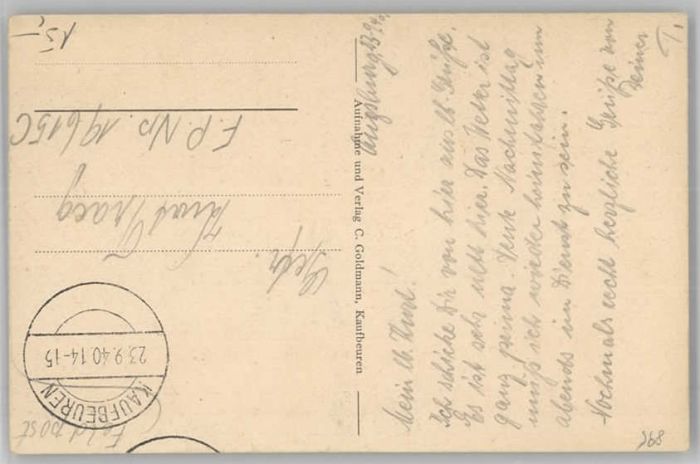 Augsburg 23.9.40
Mein lb. Knut!
Ich schicke Dir von hier aus lb. Grüße.
Es ist sehr nett hier. Das Wetter ist
ganz prima. Heute Nachmittag
muß ich wieder heimfahren um
abends im Dienst zu sein.
Nochmals recht herzliche Grüße von
Deiner
T.
Aufnahme und Verlag C. Goldmann, Kaufbeuren
Feldpost
KAUFBEUREN
23.9.40.14-15
Gefr.
Knut
F.P. No. 19615C
15,-